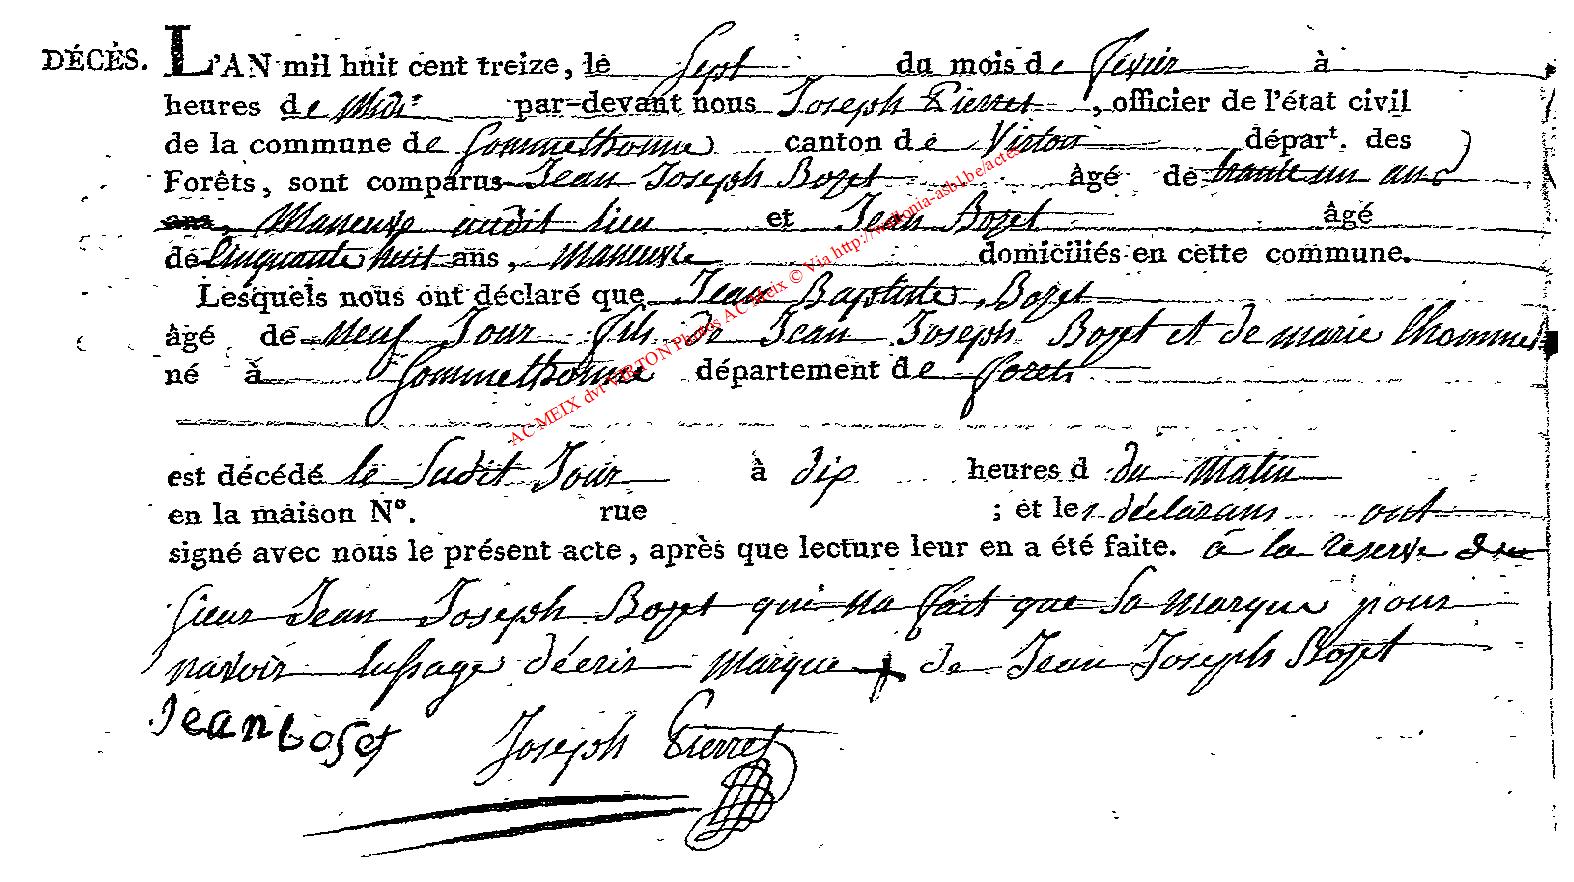 DÉCÈS. L'AN mil huit cent treize, le Sept du mois de fevier à
heures de Midi par-devant nous Joseph Pierret, officier de l'état civil
de la commune de Sommethonne canton de Virton dépar.t des
Forêts, sont comparus Jean Joseph Bozet âgé de trante un ans
ans, Maneuvre audit lieu et Jean Bozet âgé
de Cinquante huit ans, Maneuvre domiciliés en cette commune.
Lesquels nous ont déclaré que Jean Baptiste Bozet
âgé de neuf Jour fils de Jean Joseph Bozet et de marie Lhommel
né à Sommethonne département de foret
est décédé le Sudit Jour à dix heures d du Matin
en la maison N°. rue ; et les déclarans ont
signé avec nous le présent acte, après que lecture leur en a été faite. à la reserve du
Sieur Jean Joseph Bozet qui na fait que Sa marque pour
navoir lussage décrir marque + de Jean Joseph Bozet
Jean boset Joseph Pierret
AC-MEIX dvt VIRTON Photos AC-Meix © Via http://wallonia-asbl.be/actes